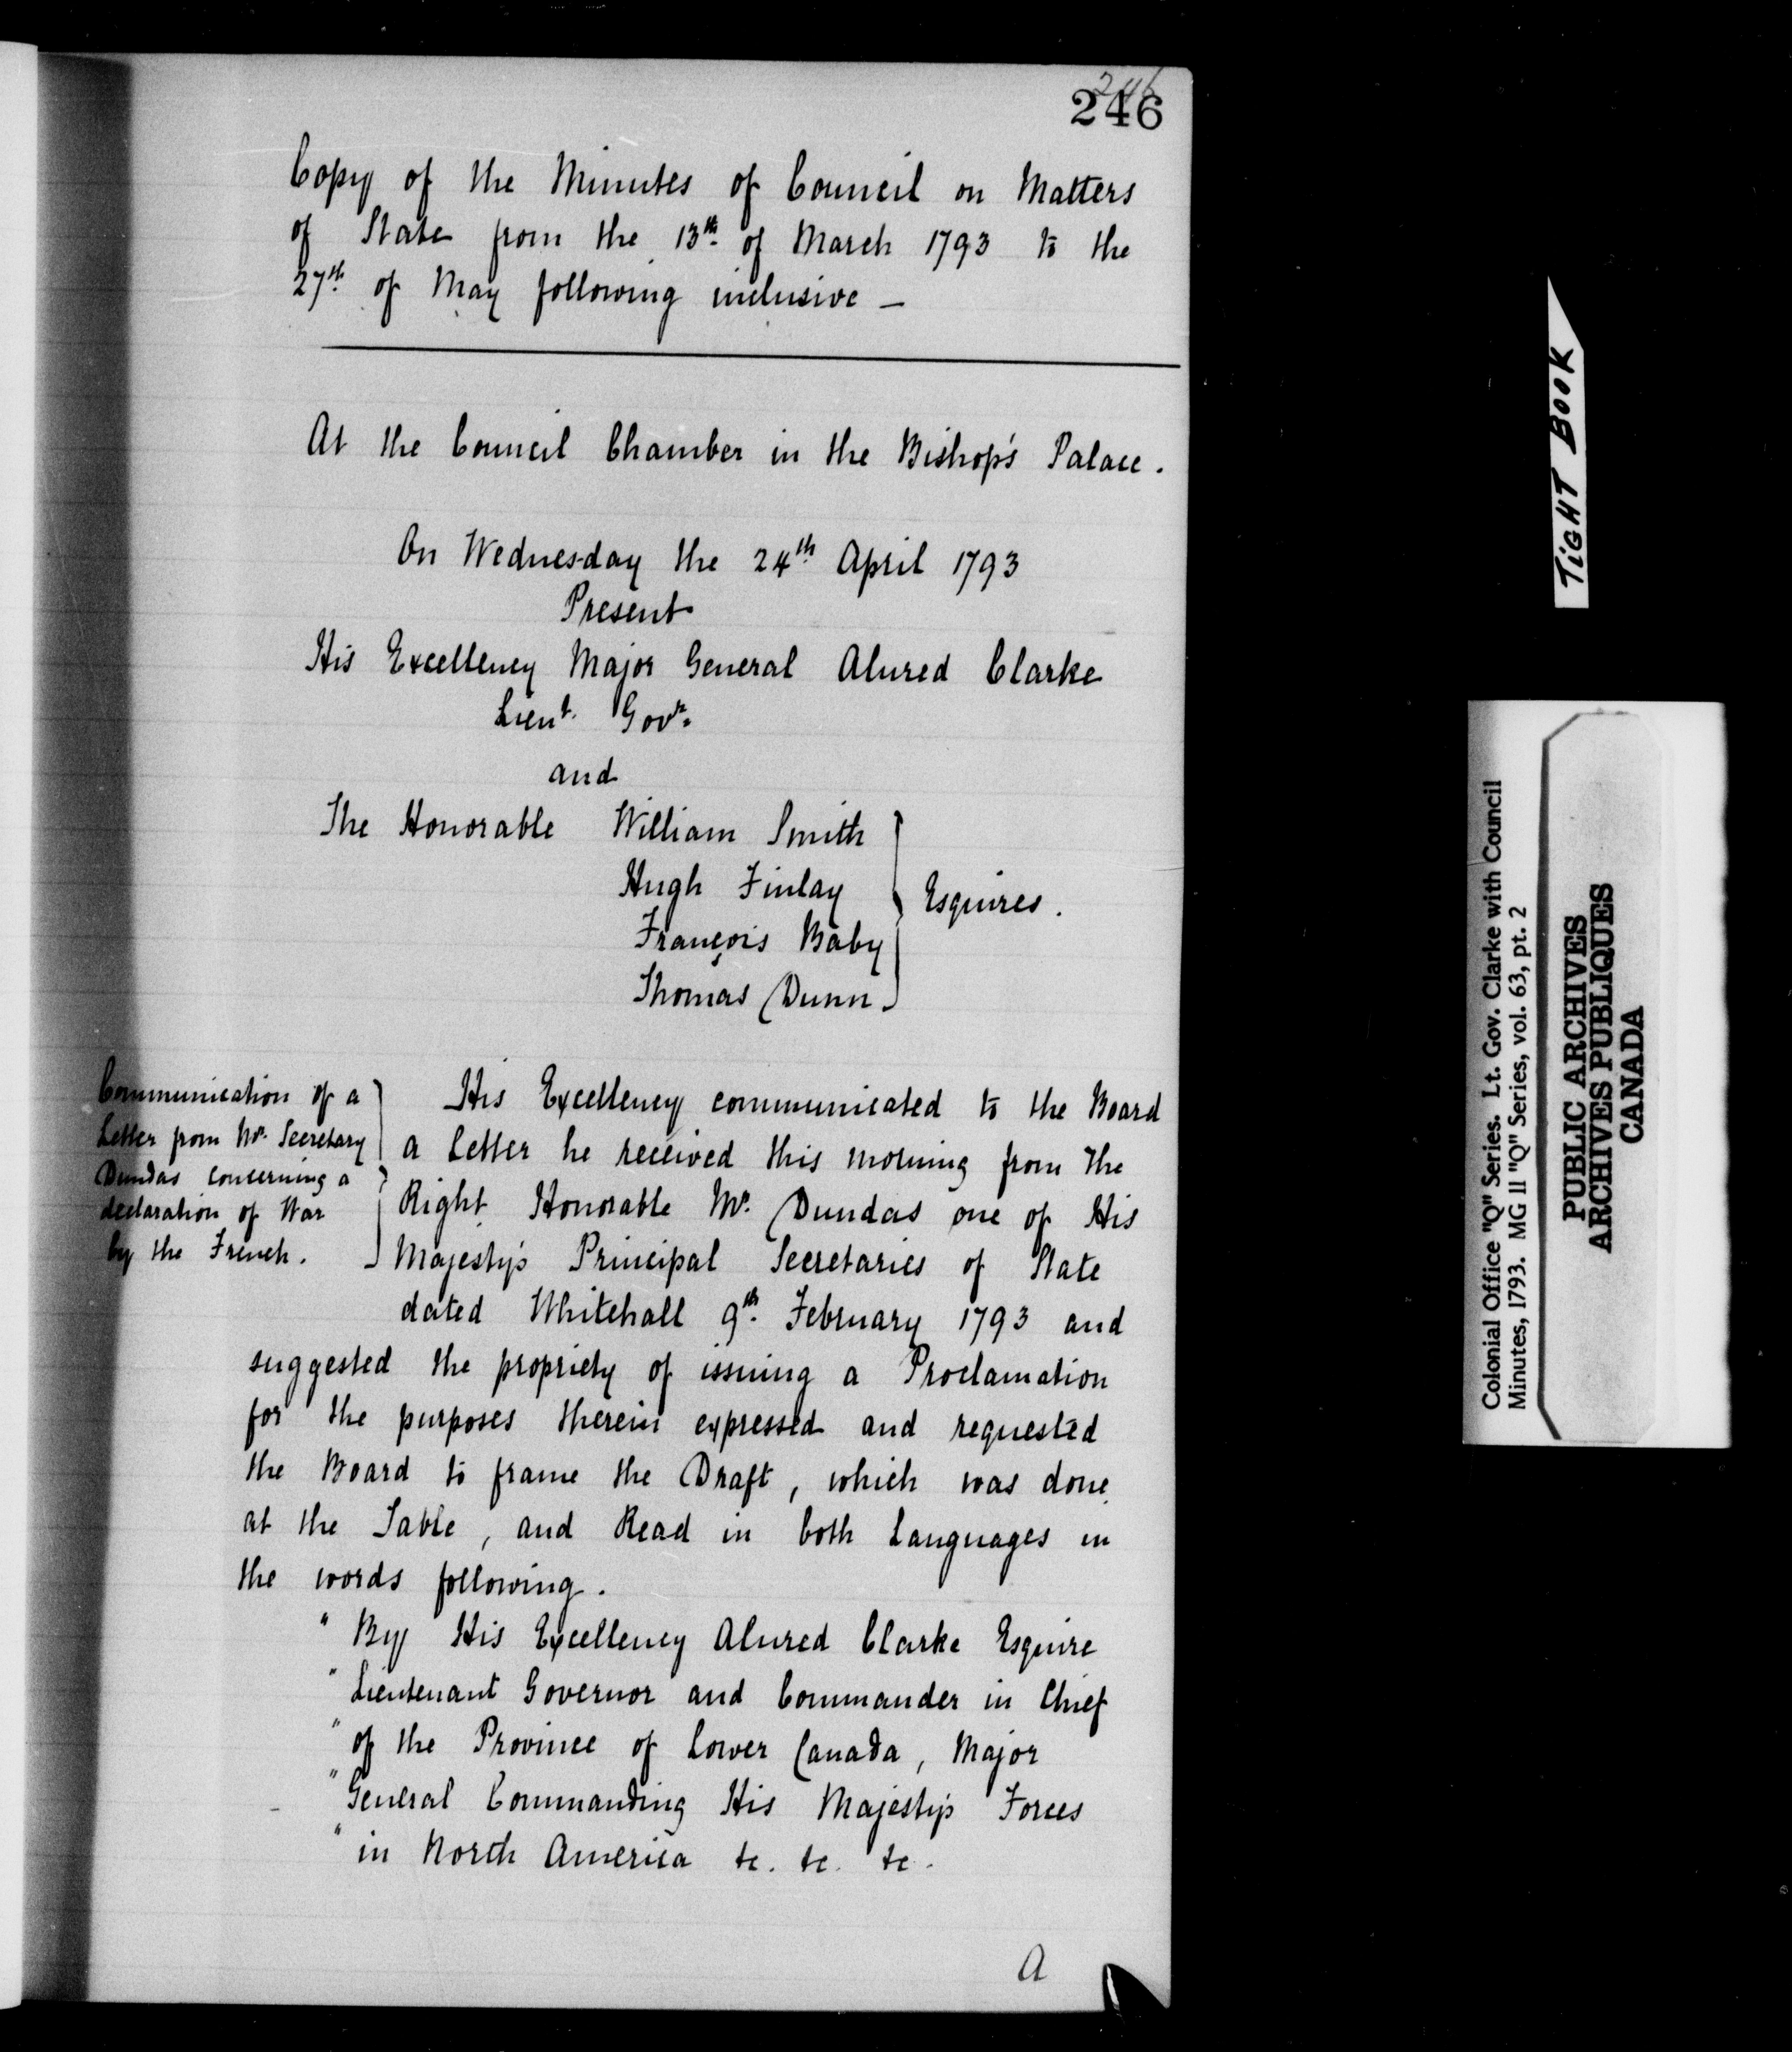 246
246
Copy of the Minutes of Council on Matters
of State from the 13th of March 1793 to the
27th of May following inclusive —
At the Council Chamber in the Bishop's Palace.
On Wednesday the 24th April 1793
Present
His Excellency Major General Alured Clarke
Lieut. Govr.
and
The Honorable William Smith
Hugh Finlay
François Baby
Thomas Dunn
Esquires.
Communication of a
Letter from Mr. Secretary
Dundas concerning a
declaration of War
by the French.
His Excellency communicated to the Board
a Letter he received this morning from the
Right Honorable Mr. Dundas one of His
Majesty's Principal Secretaries of State
dated Whitehall 9th February 1793 and
suggested the propriety of issuing a Proclamation
for the purposes therein expressed and requested
the Board to frame the Draft, which was done
at the Table, and Read in both Languages in
the words following.
" By His Excellency Alured Clarke Esquire
" Lieutenant Governor and Commander in Chief
" of the Province of Lower Canada, Major
" General Commanding His Majesty's Forces
" in North America &c. &c. &c.
A
TIGHT BOOK
Colonial Office "Q" Series. Lt. Gov. Clarke with Council
Minutes, 1793. MG 11 "Q" Series, vol. 63, pt. 2
PUBLIC ARCHIVES
ARCHIVES PUBLIQUES
CANADA